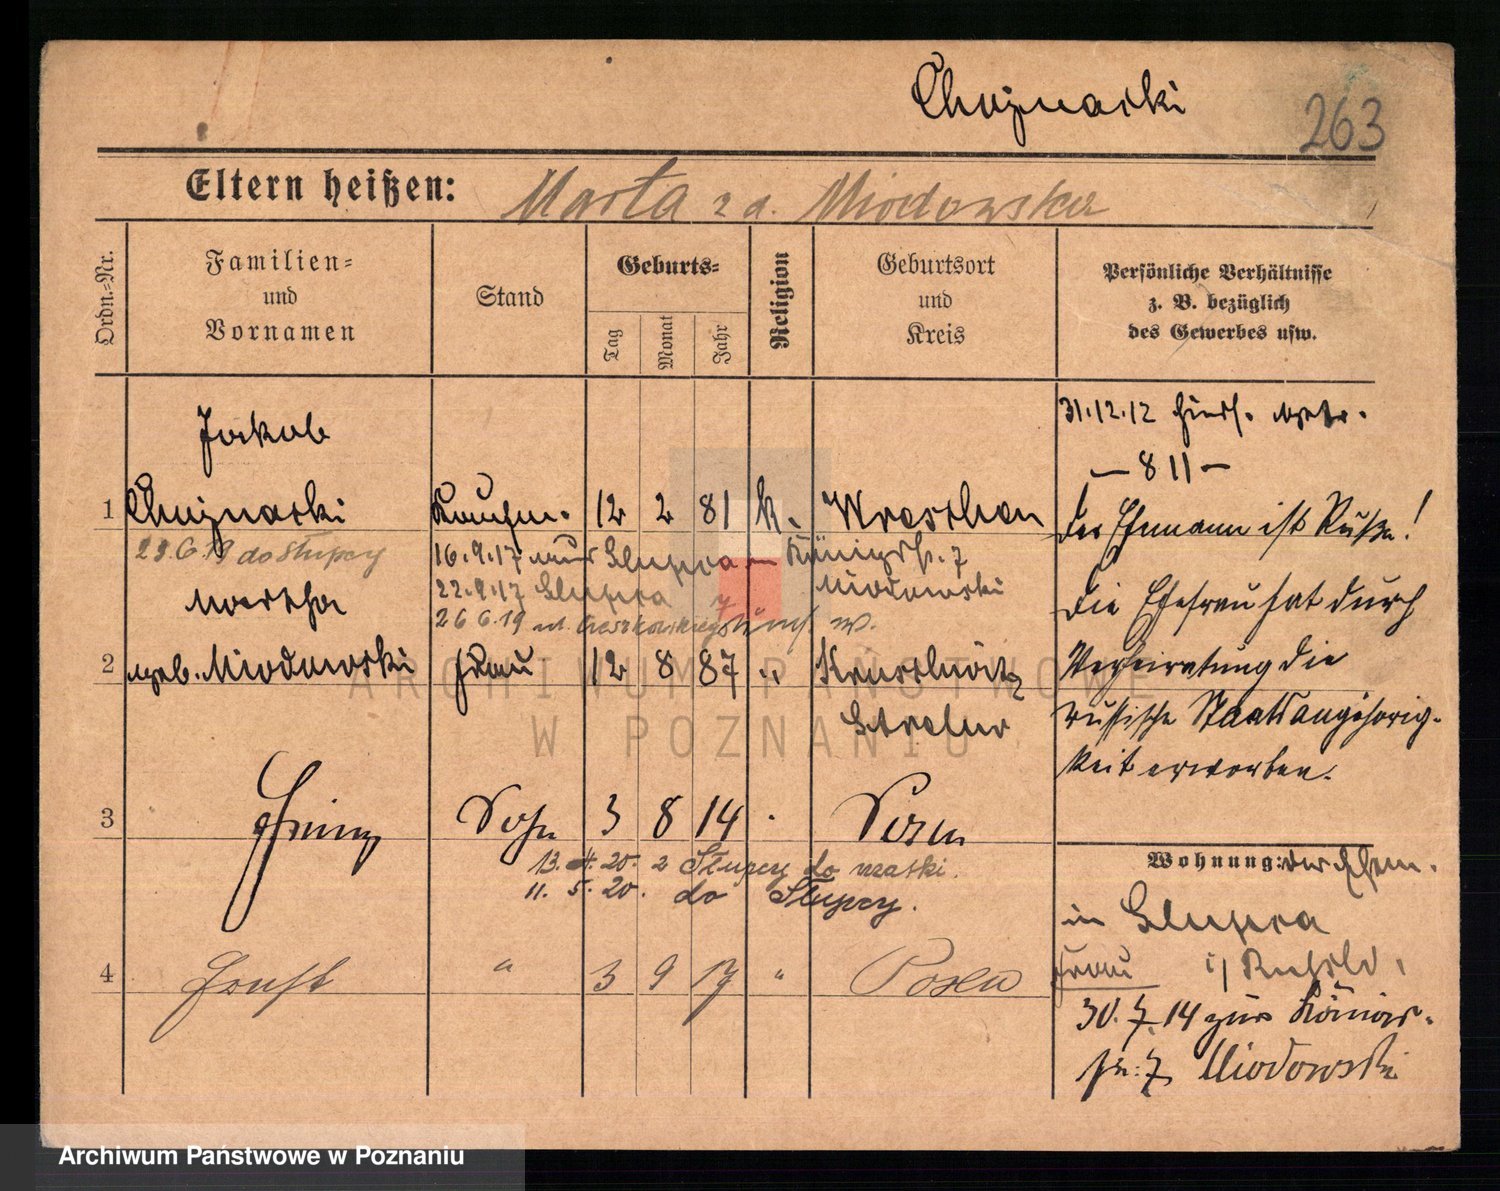 Chojnacki
263
Eltern heißen: Marta z d. Miodowska
Ordn.-Nr.
Familien- und Vornamen
Stand
Geburts-
Tag
Monat
Jahr
Religion
Geburtsort und Kreis
Persönliche Verhältnisse z. B. bezüglich des Gewerbes usw.
Jakob
31.12.12
– 811 –
1 Chojnacki Kaufm. 12 2 81 k. Wreschen
Der Ehemann ist Russe!
23.6.19 do Słupcy
16.9.17 aus Slupca Königstr. 7
22.9.17 Slupca Miodowski
Martha
26 6.19
Die Ehefrau hat durch
2 geb. Miodowski Frau 12 8 87 " Kruschwitz
Verheiratung die
Strelno
russische Staatsangehörig-
keit erworben.
3 Heinz Sohn 3 8 14 Posen
13. 4. 20. z Słupcy do matki.
11. 5. 20. do Słupcy.
Wohnung: der Ehem.
in Slupca
4 Ernst " 3 9 17 " Posen
Frau i/ Rußld.
30.7.14 zur Königs-
str. 7 Miodowski
ARCHIWUM PAŃSTWOWE
W POZNANIU
Archiwum Państwowe w Poznaniu